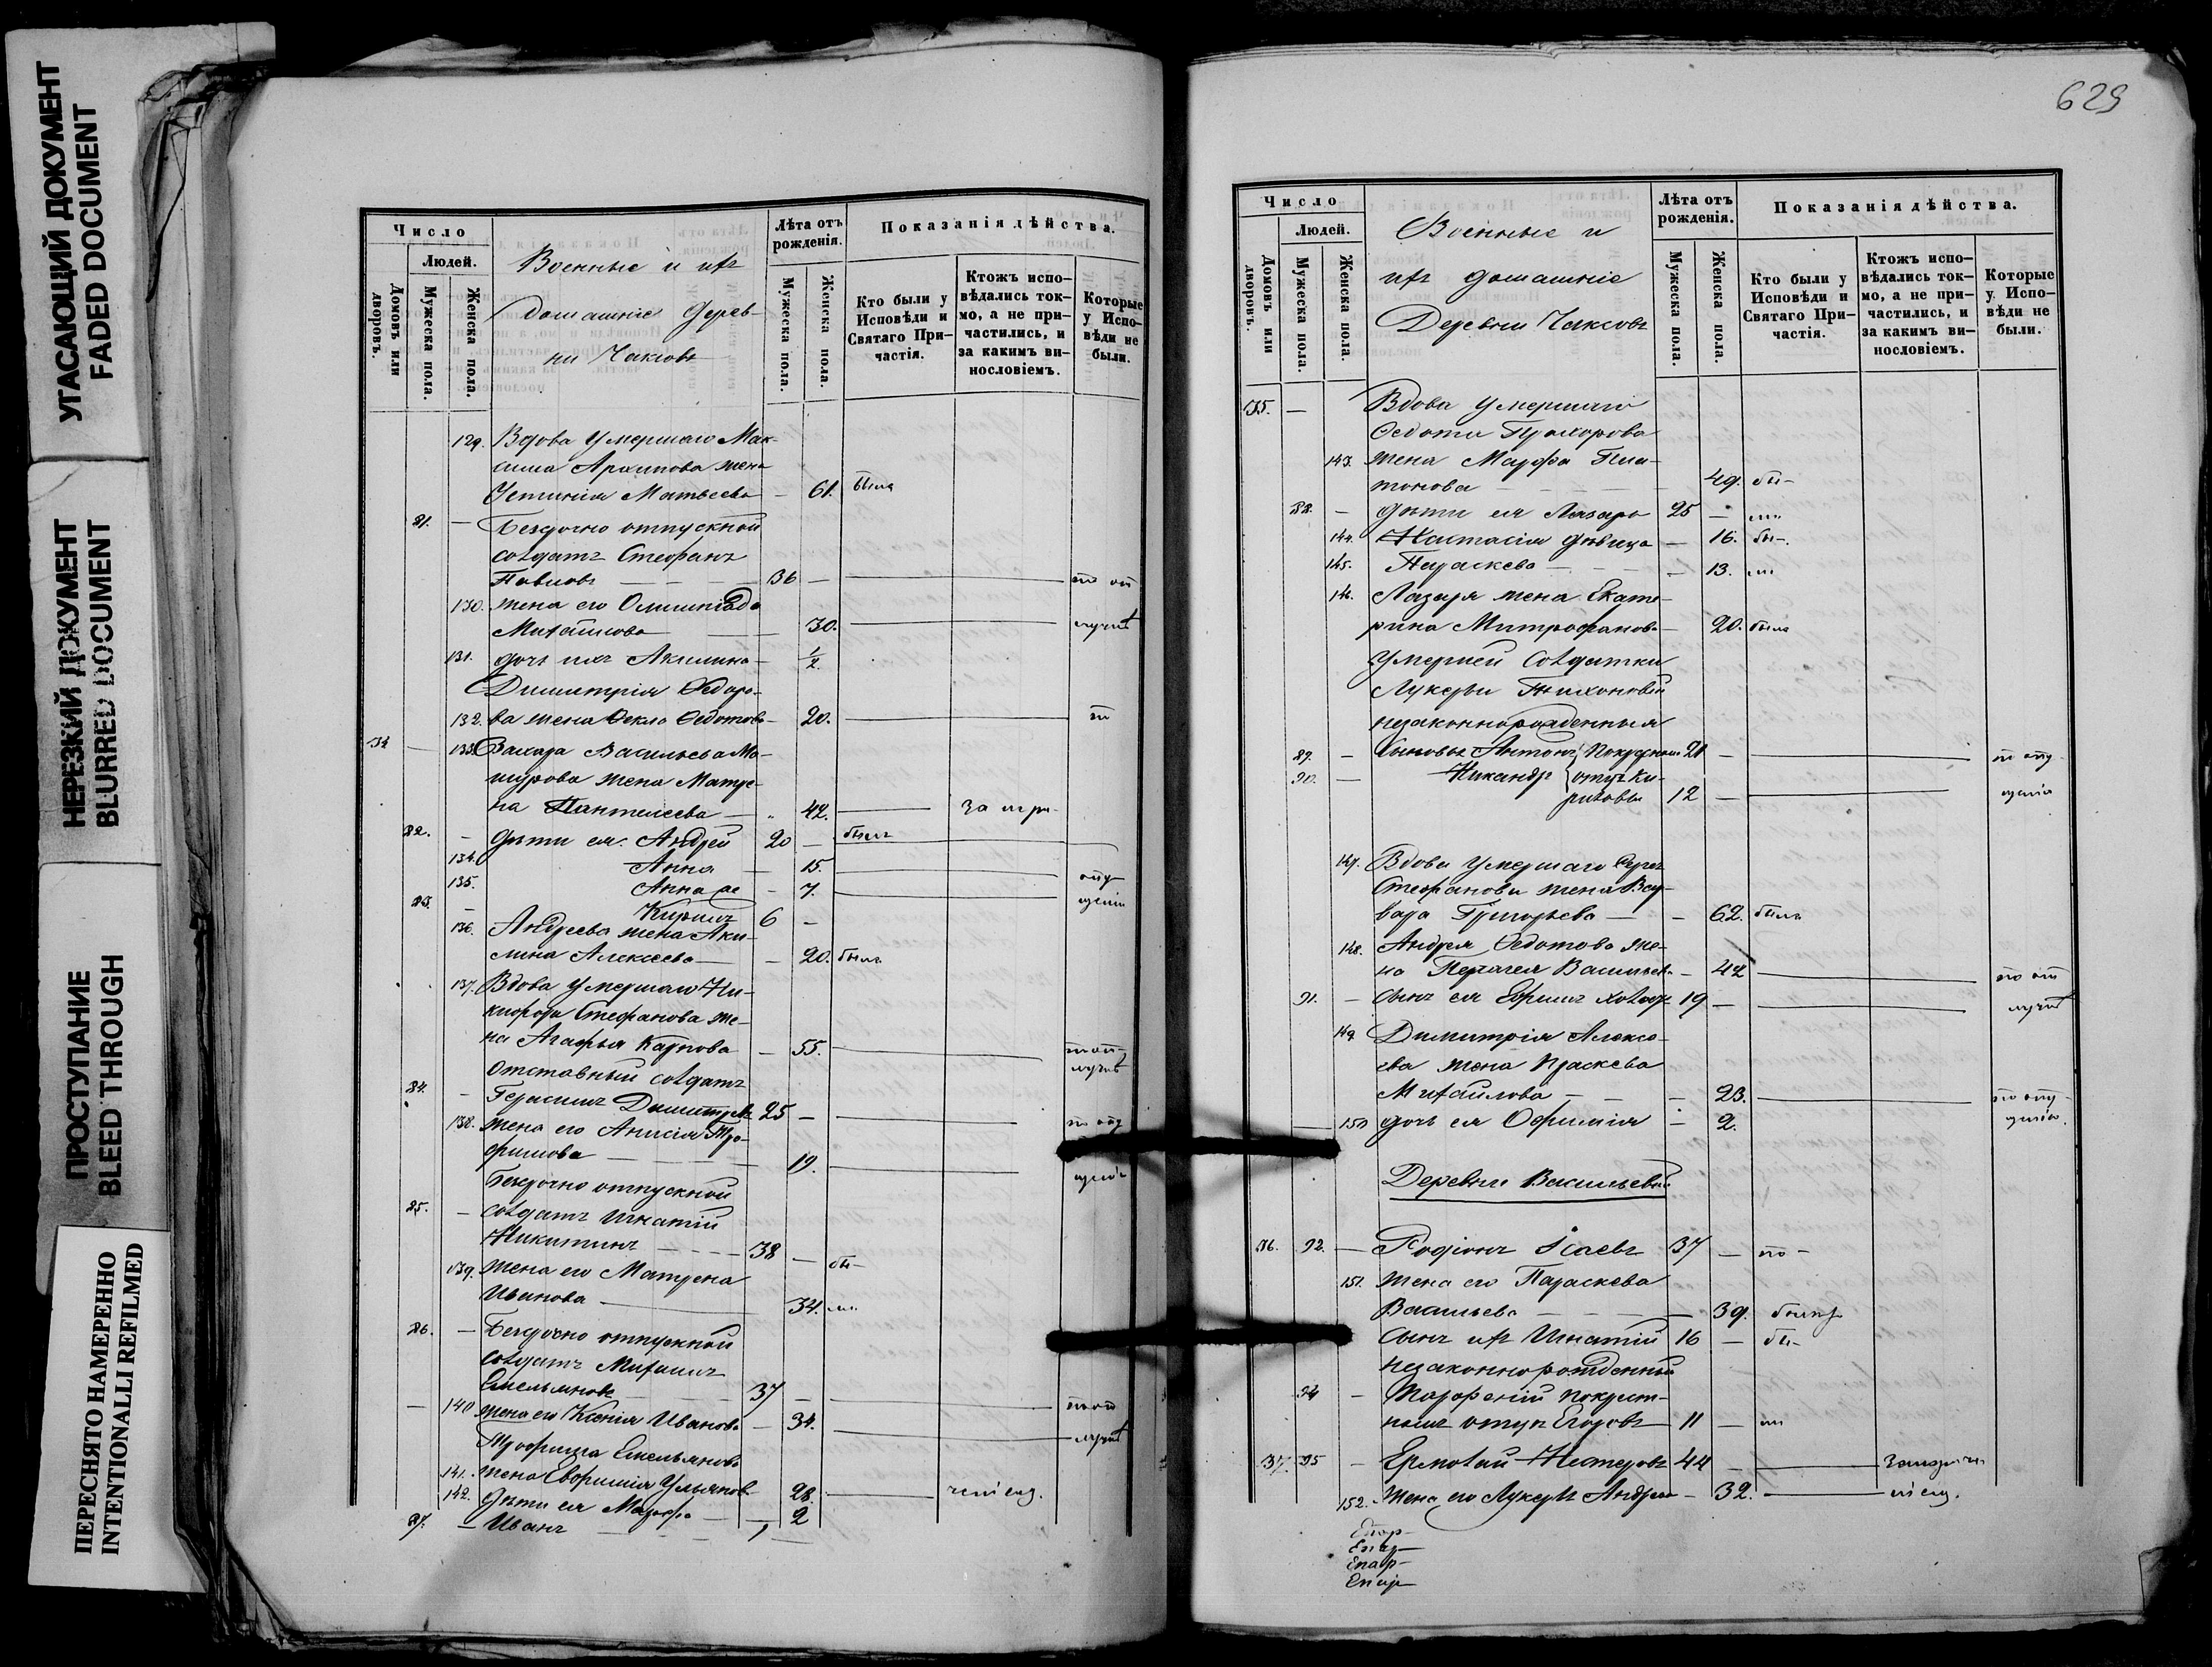 УГАСАЮЩИЙ ДОКУМЕНТ
FADED DOCUMENT
НЕРЕЗКИЙ ДОКУМЕНТ
BLURRED DOCUMENT
ПРОСТУПАНИЕ
BLEED THROUGH
ПЕРЕСНЯТО НАМЕРЕННО
INTENTIONALLI REFILMED
Число
Людей.
Домовъ или дворовъ.
Мужеска пола.
Женска пола.
Военные и ихъ
домашніе дерев-
ни Чаковъ
Лѣта отъ рожденія.
Мужеска пола.
Женска пола.
Показанія дѣйства.
Кто были у Исповѣди и Святаго При-частія.
Ктожъ испо-вѣдались ток-мо, а не при-частились, и за какимъ ви-нословіемъ.
Которые у Испо-вѣди не были.
129. Вдова умершаго Мак-
сима Архипова жена
Устинія Матвеева 61. была
81. — Безсрочно отпускной
солдатъ Стефанъ
Павловъ 36 — по от
130. жена его Олимпіада
Михайлова 30. лучкѣ
131. дочь ихъ Акилина 1/2
Димитрія Ѳедоро-
132. ва жена Ѳекла Ѳедотова 20. по
34 — 133. Захара Васильева Ма-
шурова жена Матре-
на Пантелеева 42. за нера-
82. — дѣти ея: Андрей 20 — былъ
134. Анна — 15. опу
135. Анна же — 7. щенію
83. — Кирилъ 6 —
136. Андреева жена Аки-
лина Алексеева — 20. была
137. Вдова умершаго Ни-
кифора Стефанова же-
на Агафья Карпова — 55. по от-
Отставный солдатъ лучкѣ
84. — Герасимъ Димитревъ 25 —
138. жена его Анисія Тро- по опу
фимова 19. щенію
Безсрочно отпускной
85. — солдатъ Игнатій
Никитинъ 38 — бы-
139. жена его Матрена
Иванова 34. ли
86. — Безсрочно отпускной
солдатъ Михаилъ
Емельяновъ 37 —
140 жена его Ксенія Иванова — 34. по от
Трофима Емельянова лучкѣ
141. жена Евфимія Ульянов. 28.
142. дѣти ея Марфа — 2
87. — Иванъ 1
629
Число
Людей.
Домовъ или дворовъ.
Мужеска пола.
Женска пола.
Военные и
ихъ домашніе
Деревни Чаковъ
Лѣта отъ рожденія.
Мужеска пола.
Женска пола.
Показанія дѣйства.
Кто были у Исповѣди и Святаго При-частія.
Ктожъ испо-вѣдались ток-мо, а не при-частились, и за какимъ ви-нословіемъ.
Которые у Испо-вѣди не были.
35. — Вдова умершаго
Ѳедота Прохорова
143. жена Марфа Пла-
тонова 49. бы-
88. — дѣти ея Лазарь 25 — ли
144. Настасія дѣвица — 16. бы-
145. Параскева — 13. ли
146. Лазаря жена Екате-
рина Митрофанова 20. была
Умершей солдатки
Лукерьи Тихоновой
незаконнорожденныя
89. — сыновья Антонъ по крестном 21 — по опу-
90. — Никандръ отцѣ Ки-
риловы 12 — щенію
147. Вдова умершаго
Стефанова жена Вар-
вара Григорьева — 62. была
148. Андрея Ѳедотова же-
на Пелагея Васильев. — 42 по от
91. — сынъ ея Ефимъ холос. 19 — лучкѣ
149 Димитрія Алексе-
ева жена Праскева
Михайлова — 23. по опу-
150 дочь ея Офимія — 2. щенію.
Деревни Васильевой
36. 92. — Родіонъ Исаевъ 37 —
151. жена его Параскева
Васильева — 39.
сынъ ихъ Игнатій 16 — бы-
незаконнорожденный
94 — Парфеній по крест-
номъ отцѣ Егоровъ 11 — ли
37. 95 — Ермолай Нестеровъ 44 —
152. жена его Лукерья Андрее — 32.
Епар-
Епар-
Епар-
Епар-